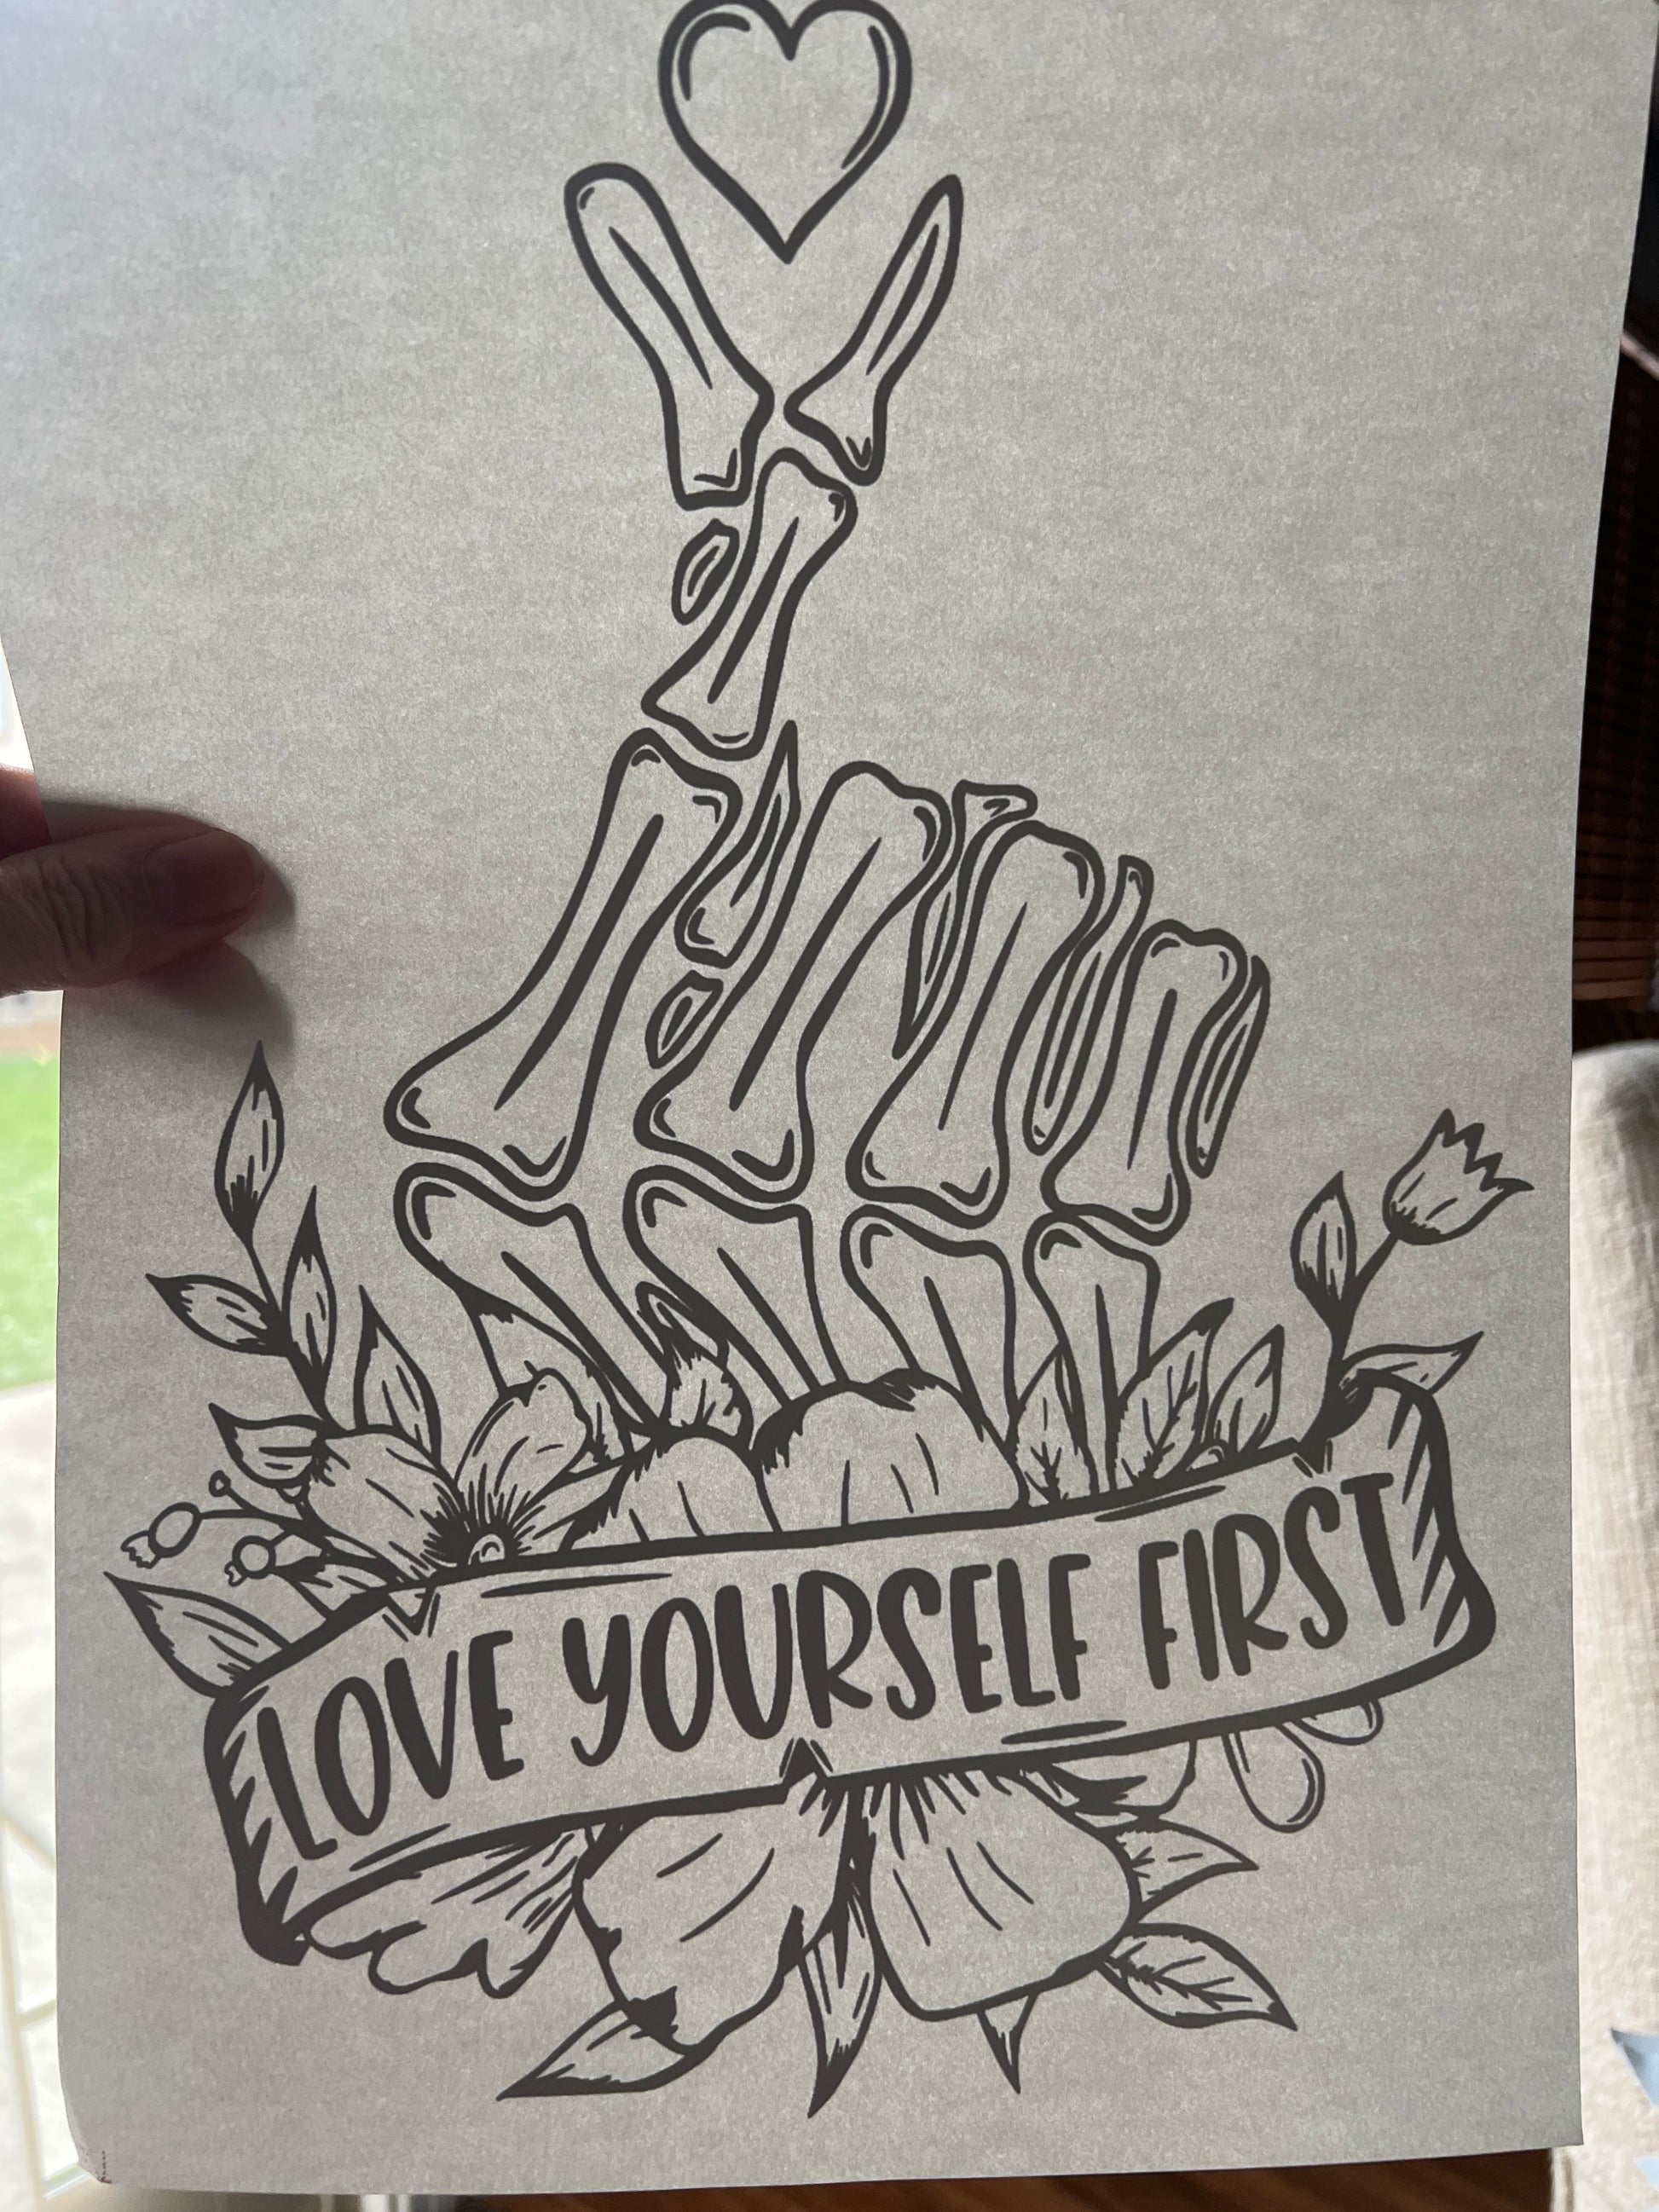 LOVE YOURSELF FIRST